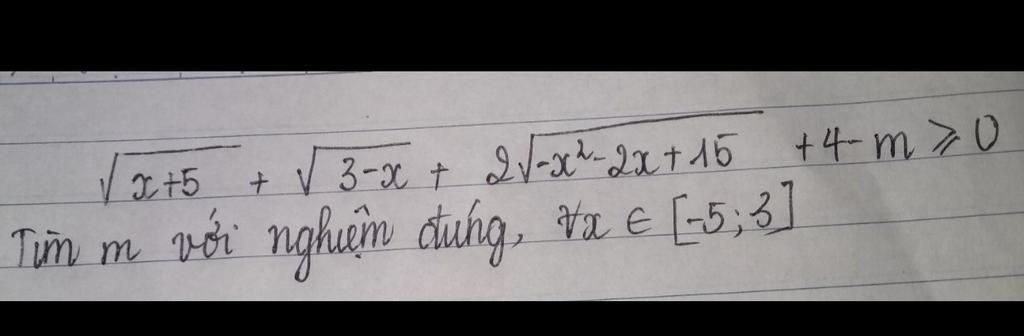 √(x+5) + √(3-x) + 2√(-x²-2x+15) + 4 - m ⩾ 0
Tìm m với nghiệm đúng, ∀x ∈ [-5; 3]